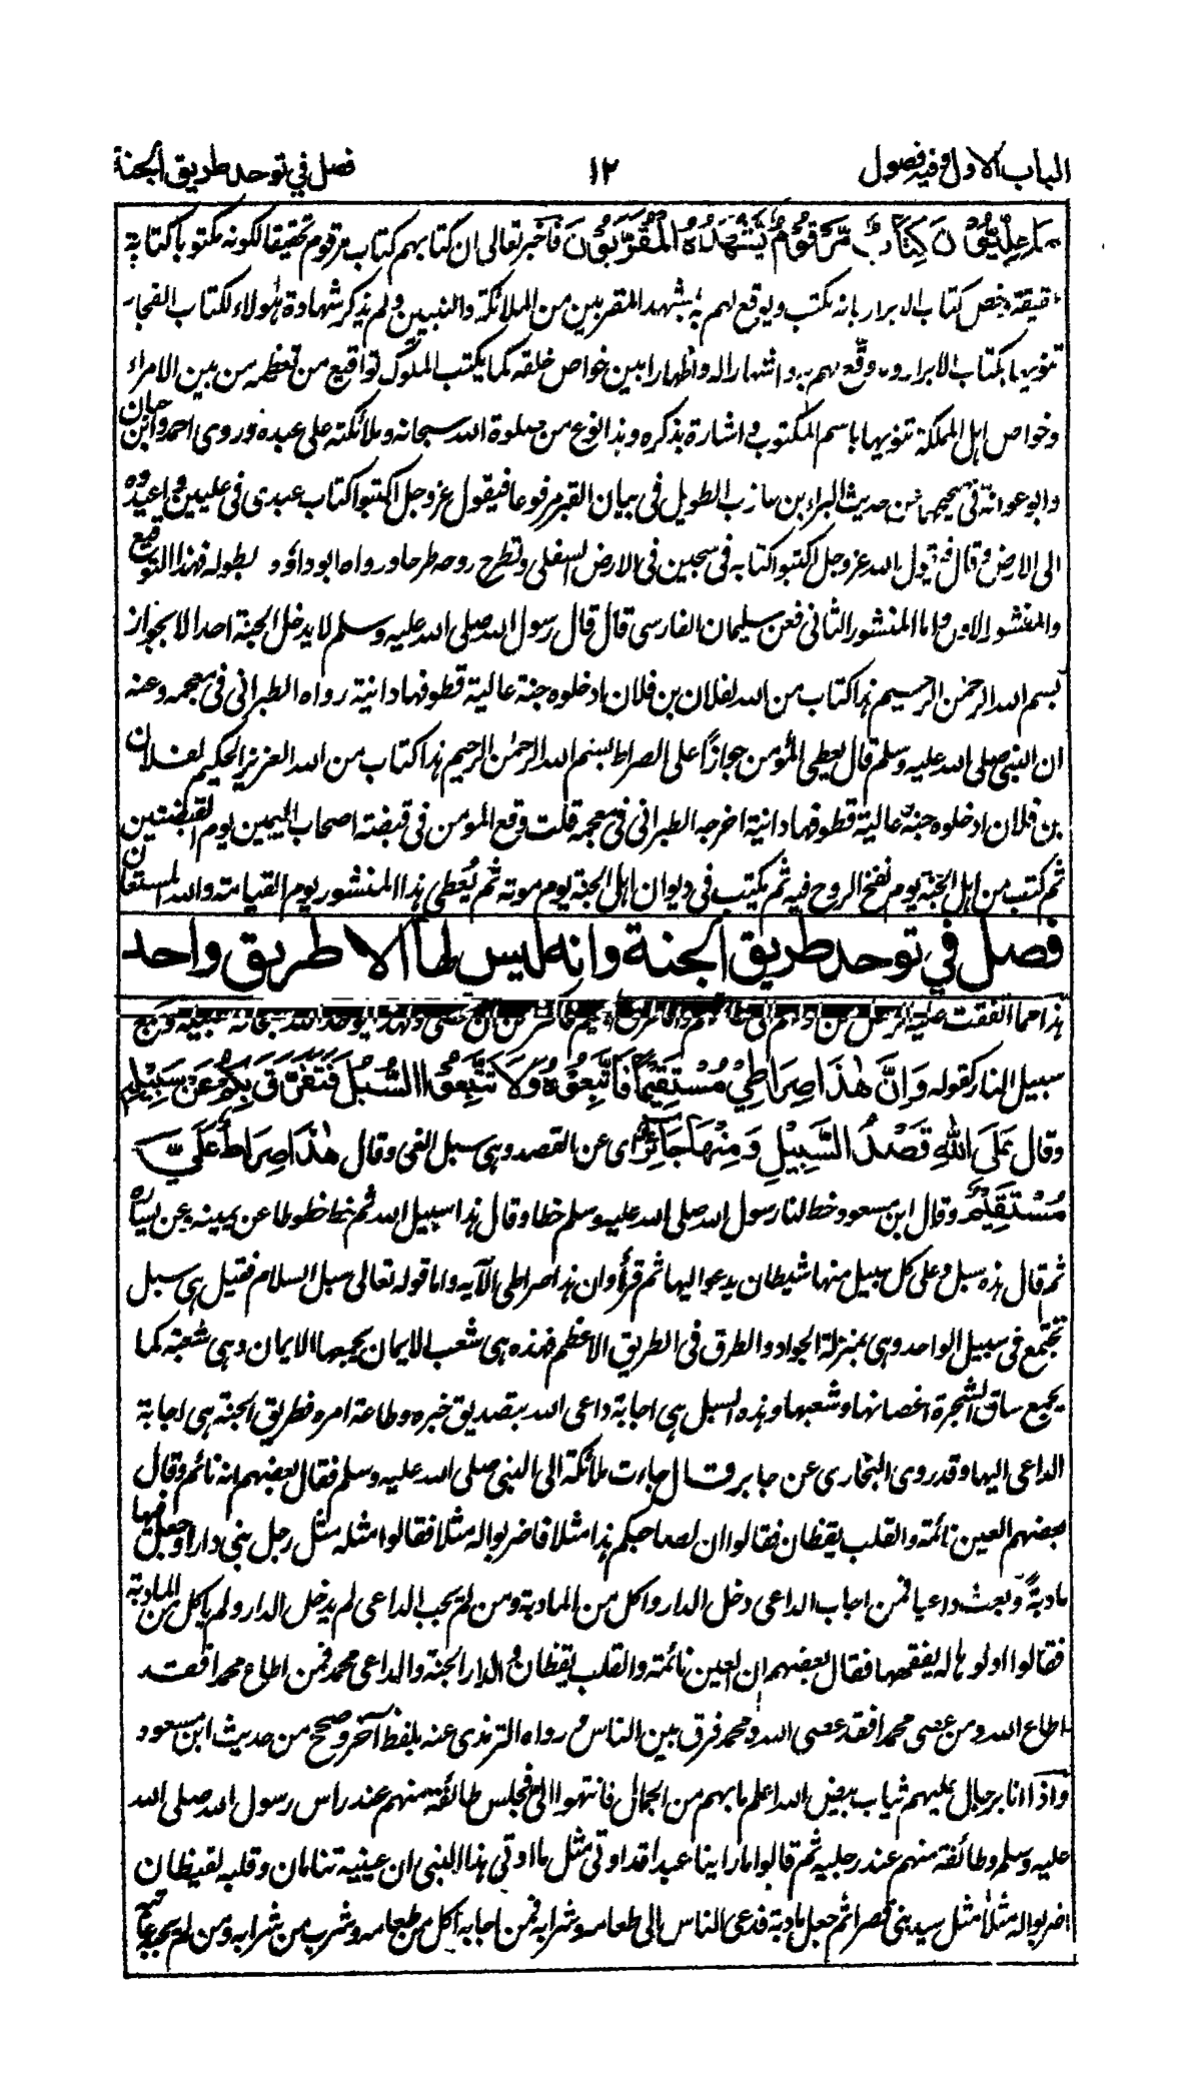 الباب الاول وفيه فصول ١٢ فصل في توحد طريق الجنة
مَا عِلِّيُّوْنَ كِتَابٌ مَّرْقُوْمٌ يَّشْهَدُهُ الْمُقَرَّبُوْنَ فاخبر تعالى ان كتابهم كتاب مرقوم تحقيقا لكونه مكتوبا كتابة
حقيقة وخص كتاب الابرار بانه يكتب ويوقع لهم به بمشهد المقربين من الملائكة والنبيين ولم يذكر شهادة هؤلاء لكتاب الفجار
تنويها بكتاب الابرار وما وقّع لهم به واشهارا له واظهارا بين خواص خلقه كما يكتب الملوك تواقيع من تعظمه من بين الامراء
وخواص اهل المملكة تنويها باسم المكتوب له واشارة بذكره وهذا نوع من صلوة الله سبحانه وملائكته على عبده وروى احمد وابن حبان
وابو عوانة في صحيحهما من حديث البراء بن عازب الطويل في بيان القبر مرفوعا فيقول عز وجل اكتبوا كتاب عبدى في عليين واعيدوه
الى الارض وقال فيقول الله عز وجل اكتبوا كتابه في سجين في الارض السفلى وتطرح روحه طرحا ورواه ابو داؤد بطوله فهذا التوقيع
والمنشور الاول واما المنشور الثاني فعن سليمان الفارسى قال قال رسول الله صلى الله عليه وسلم لا يدخل الجنة احد الا بجواز
بسم الله الرحمن الرحيم هذا كتاب من الله لفلان بن فلان ادخلوه جنة عالية قطوفها دانية رواه الطبرانى في معجمه وعنه
ان النبي صلى الله عليه وسلم قال يعطى المؤمن جوازًا على الصراط بسم الله الرحمن الرحيم هذا كتاب من الله العزيز الحكيم لفلان
بن فلان ادخلوه جنة عالية قطوفها دانية اخرجه الطبرانى في معجمه قلت وقع المومن في قبضة اصحاب اليمين يوم القبضتين
ثم كتب من اهل الجنة يوم نفخ الروح فيه ثم يكتب في ديوان اهل الجنة يوم موته ثم يُعطى هذا المنشور يوم القيامة والله المستعان
فصل في توحد طريق الجنة وانه ليس لها الا طريق واحد
هذا مما اتفقت عليه الرسل من اولهم الى خاتمهم واما طرق الجحيم فاكثر من ان تحصى ولهذا يوحد الله سبحانه سبيله ويجمع
سبيل النار كقوله وَاِنَّ هٰذَا صِرَاطِيْ مُسْتَقِيْمًا فَاتَّبِعُوْهُ وَلَا تَتَّبِعُوا السُّبُلَ فَتَفَرَّقَ بِكُمْ عَنْ سَبِيْلِهٖ
وقال عَلَى اللهِ قَصْدُ السَّبِيْلِ وَمِنْهَا جَآئِرٌ اى عن القصد وهى سبل الغى وقال هٰذَا صِرَاطٌ عَلَيَّ
مُسْتَقِيْمٌ وقال ابن مسعود خط لنا رسول الله صلى الله عليه وسلم خطا وقال هذا سبيل الله ثم خط خطوطا عن يمينه وعن يساره
ثم قال هذه سبل وعلى كل سبيل منها شيطان يدعوا اليها ثم قرأ وان هذا صراطى الآيه واما قوله تعالى سبل السلام فقيل هى سبل
تجتمع في سبيل الواحد وهى بمنزلة الجواد والطرق في الطريق الاعظم فهذه هى شعب الايمان يجمعها الايمان وهى شعبة كما
يجمع ساق الشجرة اغصانها وشعبها وهذه السبل هى اجابة داعى الله بتصديق خبره وطاعة امره فطريق الجنة هى اجابة
الداعى اليها وقد روى البخارى عن جابر قال جاءت ملائكة الى النبى صلى الله عليه وسلم فقال بعضهم انه نائم وقال
بعضهم العين نائمة والقلب يقظان فقالوا ان لصاحبكم هذا مثلا فاضربوا له مثلا فقالوا مثله مثل رجل بنى دارا وجعل فيها
مادبةً وبعث داعيا فمن اجاب الداعى دخل الدار واكل من المادبة ومن لم يجب الداعى لم يدخل الدار ولم ياكل من المادبة
فقالوا اولوها له يفقهها فقال بعضهم ان العين نائمة والقلب يقظان والدار الجنة والداعى محمد فمن اطاع محمدا فقد
اطاع الله ومن عصى محمدا فقد عصى الله ومحمد فرق بين الناس ورواه الترمذى عنه بلفظ آخر وصحح من حديث ابن مسعود
واذا انا برجال عليهم ثياب بيض الله اعلم ما بهم من الجمال فانتهوا الىّ فجلس طائفة منهم عند راس رسول الله صلى الله
عليه وسلم وطائفة منهم عند رجليه ثم قالوا ما راينا عبدا قد اوتى مثل ما اوتى هذا النبى ان عينيه تنامان وقلبه يقظان
اضربوا له مثلاً مثل سيد بنى قصرا ثم جعل مادبة فدعى الناس الى طعامه وشرابه فمن اجابه اكل من طعامه وشرب من شرابه ومن لم يجبه عاقبه